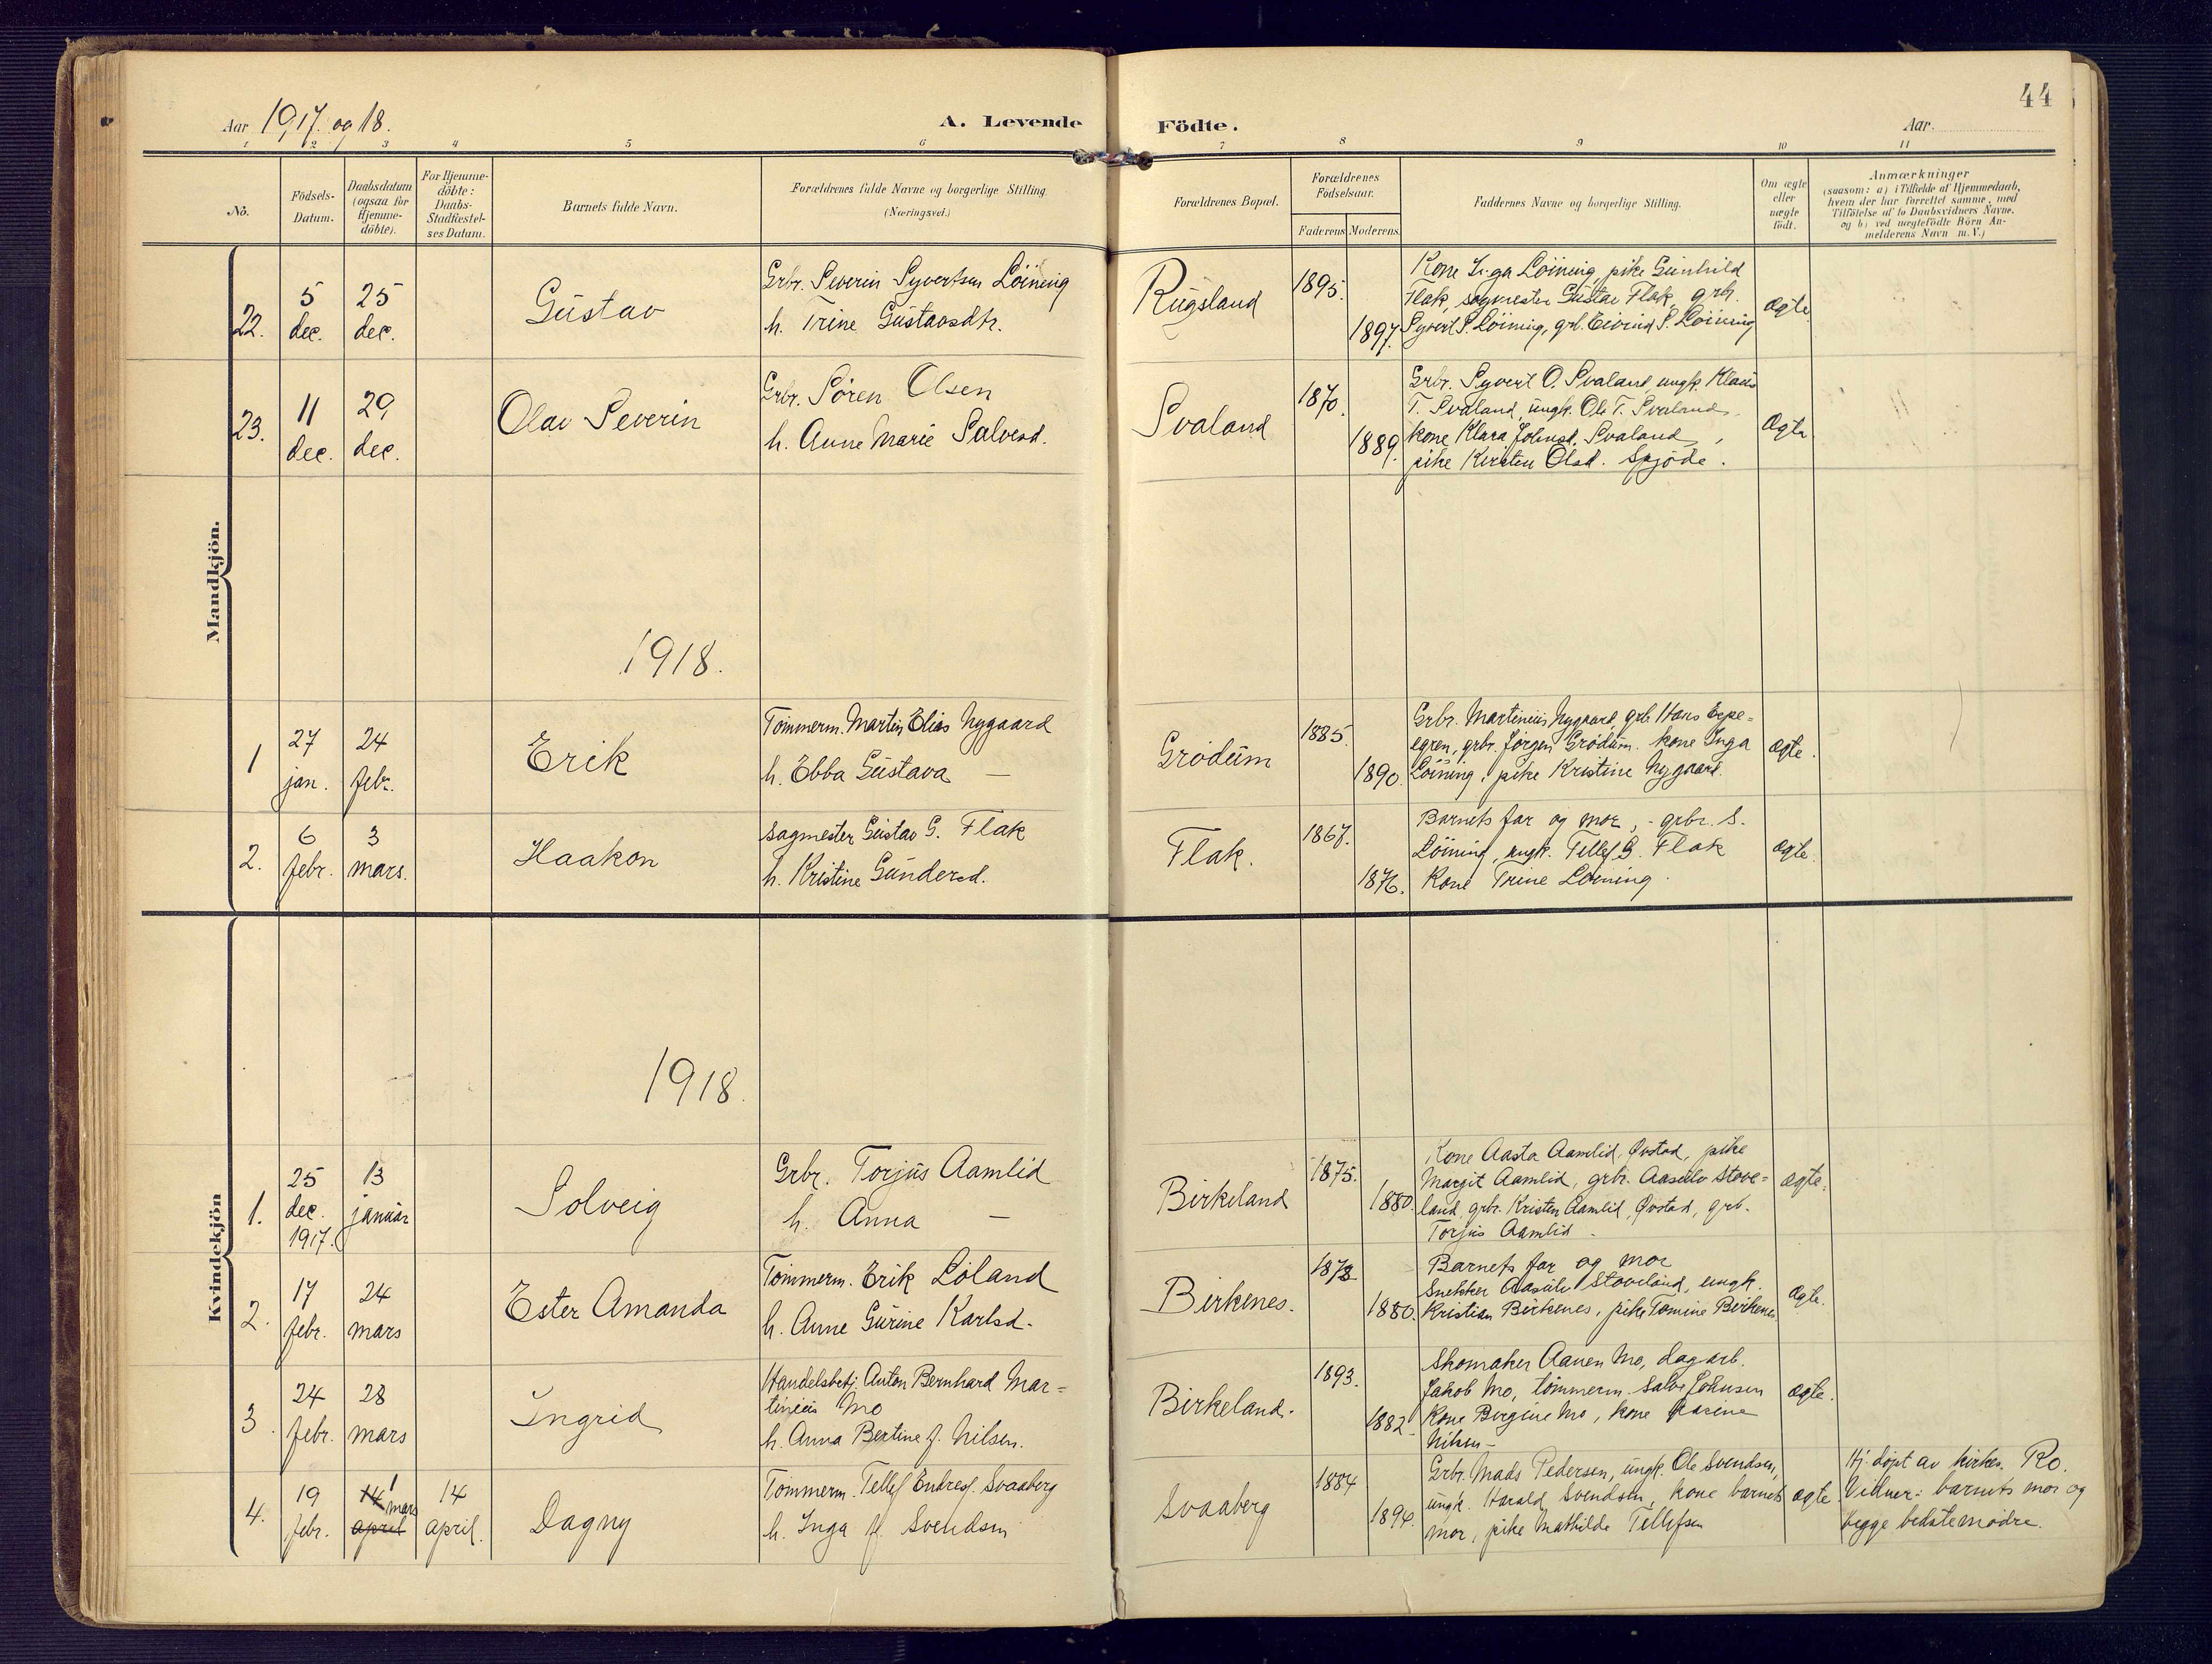 44
Aar 1917. og 18.
A. Levende Födte.
Aar.
1 2 3 4 5 6 7 8 9 10 11
No.
Födsels-
Datum.
Daabsdatum
(ogsaa for
Hjemme-
döbte).
For Hjemme-
döbte:
Daabs-
Stadfæstel-
ses Datum.
Barnets fulde Navn.
Forældrenes fulde Navne og borgerlige Stilling.
(Næringsvei.)
Forældrenes Bopæl.
Forældrenes
Födselsaar.
Faderens Moderens.
Faddernes Navne og borgerlige Stilling.
Om ægte
eller
uægte
födt.
Anmærkninger
(saasom: a) i Tilfælde af Hjemmedaab,
hvem der har forrettet samme, med
Tilföielse af to Daabsvidners Navne.
og b) ved uægtefödte Börn An-
melderens Navn m. V.)
Mandkjön.
22.
5
dec.
25
dec.
Gustav
Grbr. Severin Syvertsen Löining
h. Trine Gustavsdtr.
Rugsland
1895.
1897.
Kone Inga Löining, pike Gunhild
Flak, sagmester Gustav Flak, grb.
Syvert S. Löining, grb. Eivind S. Löining
ægte
23.
11
dec.
29
dec.
Olav Severin
Grbr. Sören Olsen
h. Anne Marie Salvesd.
Svaland
1870.
1889.
Grbr. Syvert O. Svaland, ungk. Klaus
T. Svaland, ungk. Ole T. Svaland,
kone Klara Johnsd. Svaland,
pike Kirsten Olsd. Spjöde.
ægte
1918.
1
27
jan.
24
febr.
Erik
Tömmerm. Martin Elias Nygaard
h. Ebba Gustava —
Grödum
1885.
1890.
Grbr. Martinius Nygaard, grb. Hans Eepe-
egren, grbr. Jörgen Grödum. kone Inga
Löining, pike Kristine Nygaard.
ægte.
2.
6
febr.
3
mars.
Haakon
sagmester Gustav G. Flak
h. Kristine Gundersd.
Flak.
1867.
1876.
Barnets far og mor, - grbr. S.
Löining, ungk. Tellef G. Flak
Kone Trine Löining.
ægte.
Kvindekjön
1918.
1.
25
dec.
1917.
13
januar
Solveig
Grbr. Torjus Aamlid
h. Anna —
Birkeland
1875.
1880.
Kone Aasta Aamlid, Øvstad, pike
Margit Aamlid, grbr. Aasulv Stove-
land, grbr. Kristen Aamlid, Øvstad, grb.
Torjus Aamlid.
ægte.
2.
17
febr.
24
mars
Ester Amanda
Tömmerm. Erik Löland
h. Anne Gurine Karlsd.
Birkenes.
1878
1880.
Barnets far og mor
Snekker Aasulv Stoveland, ungk.
Kristian Birkenes, pike Tomine Birkenes
ægte.
3.
24
febr.
28
mars
Ingrid
Handelsbetj. Anton Bernhard Mar-
tinius Mo
h. Anna Bertine f. Nilsen.
Birkeland.
1893.
1882
Skomaker Aanen Mo, dagarb.
Jakob Mo, tömmerm. Salve Johnsen
Kone Bergine Mo, kone Karine
Nilsen-
ægte.
4.
19
febr.
14 1
mars
april
14
april.
Dagny
Tömmerm. Tellef Endresf. Svaaberg
h. Inga f. Svendsen
Svaaberg
1884
1894.
Grbr. Mads Pedersen, ungk. Ole Svendsen,
ungk. Harald Svendsen, kone barnets
mor, pike Mathilde Tellefsen
ægte
Hj. döpt av kirkes. Ro.
Vidner: barnets mor og
begge bedstemödre.